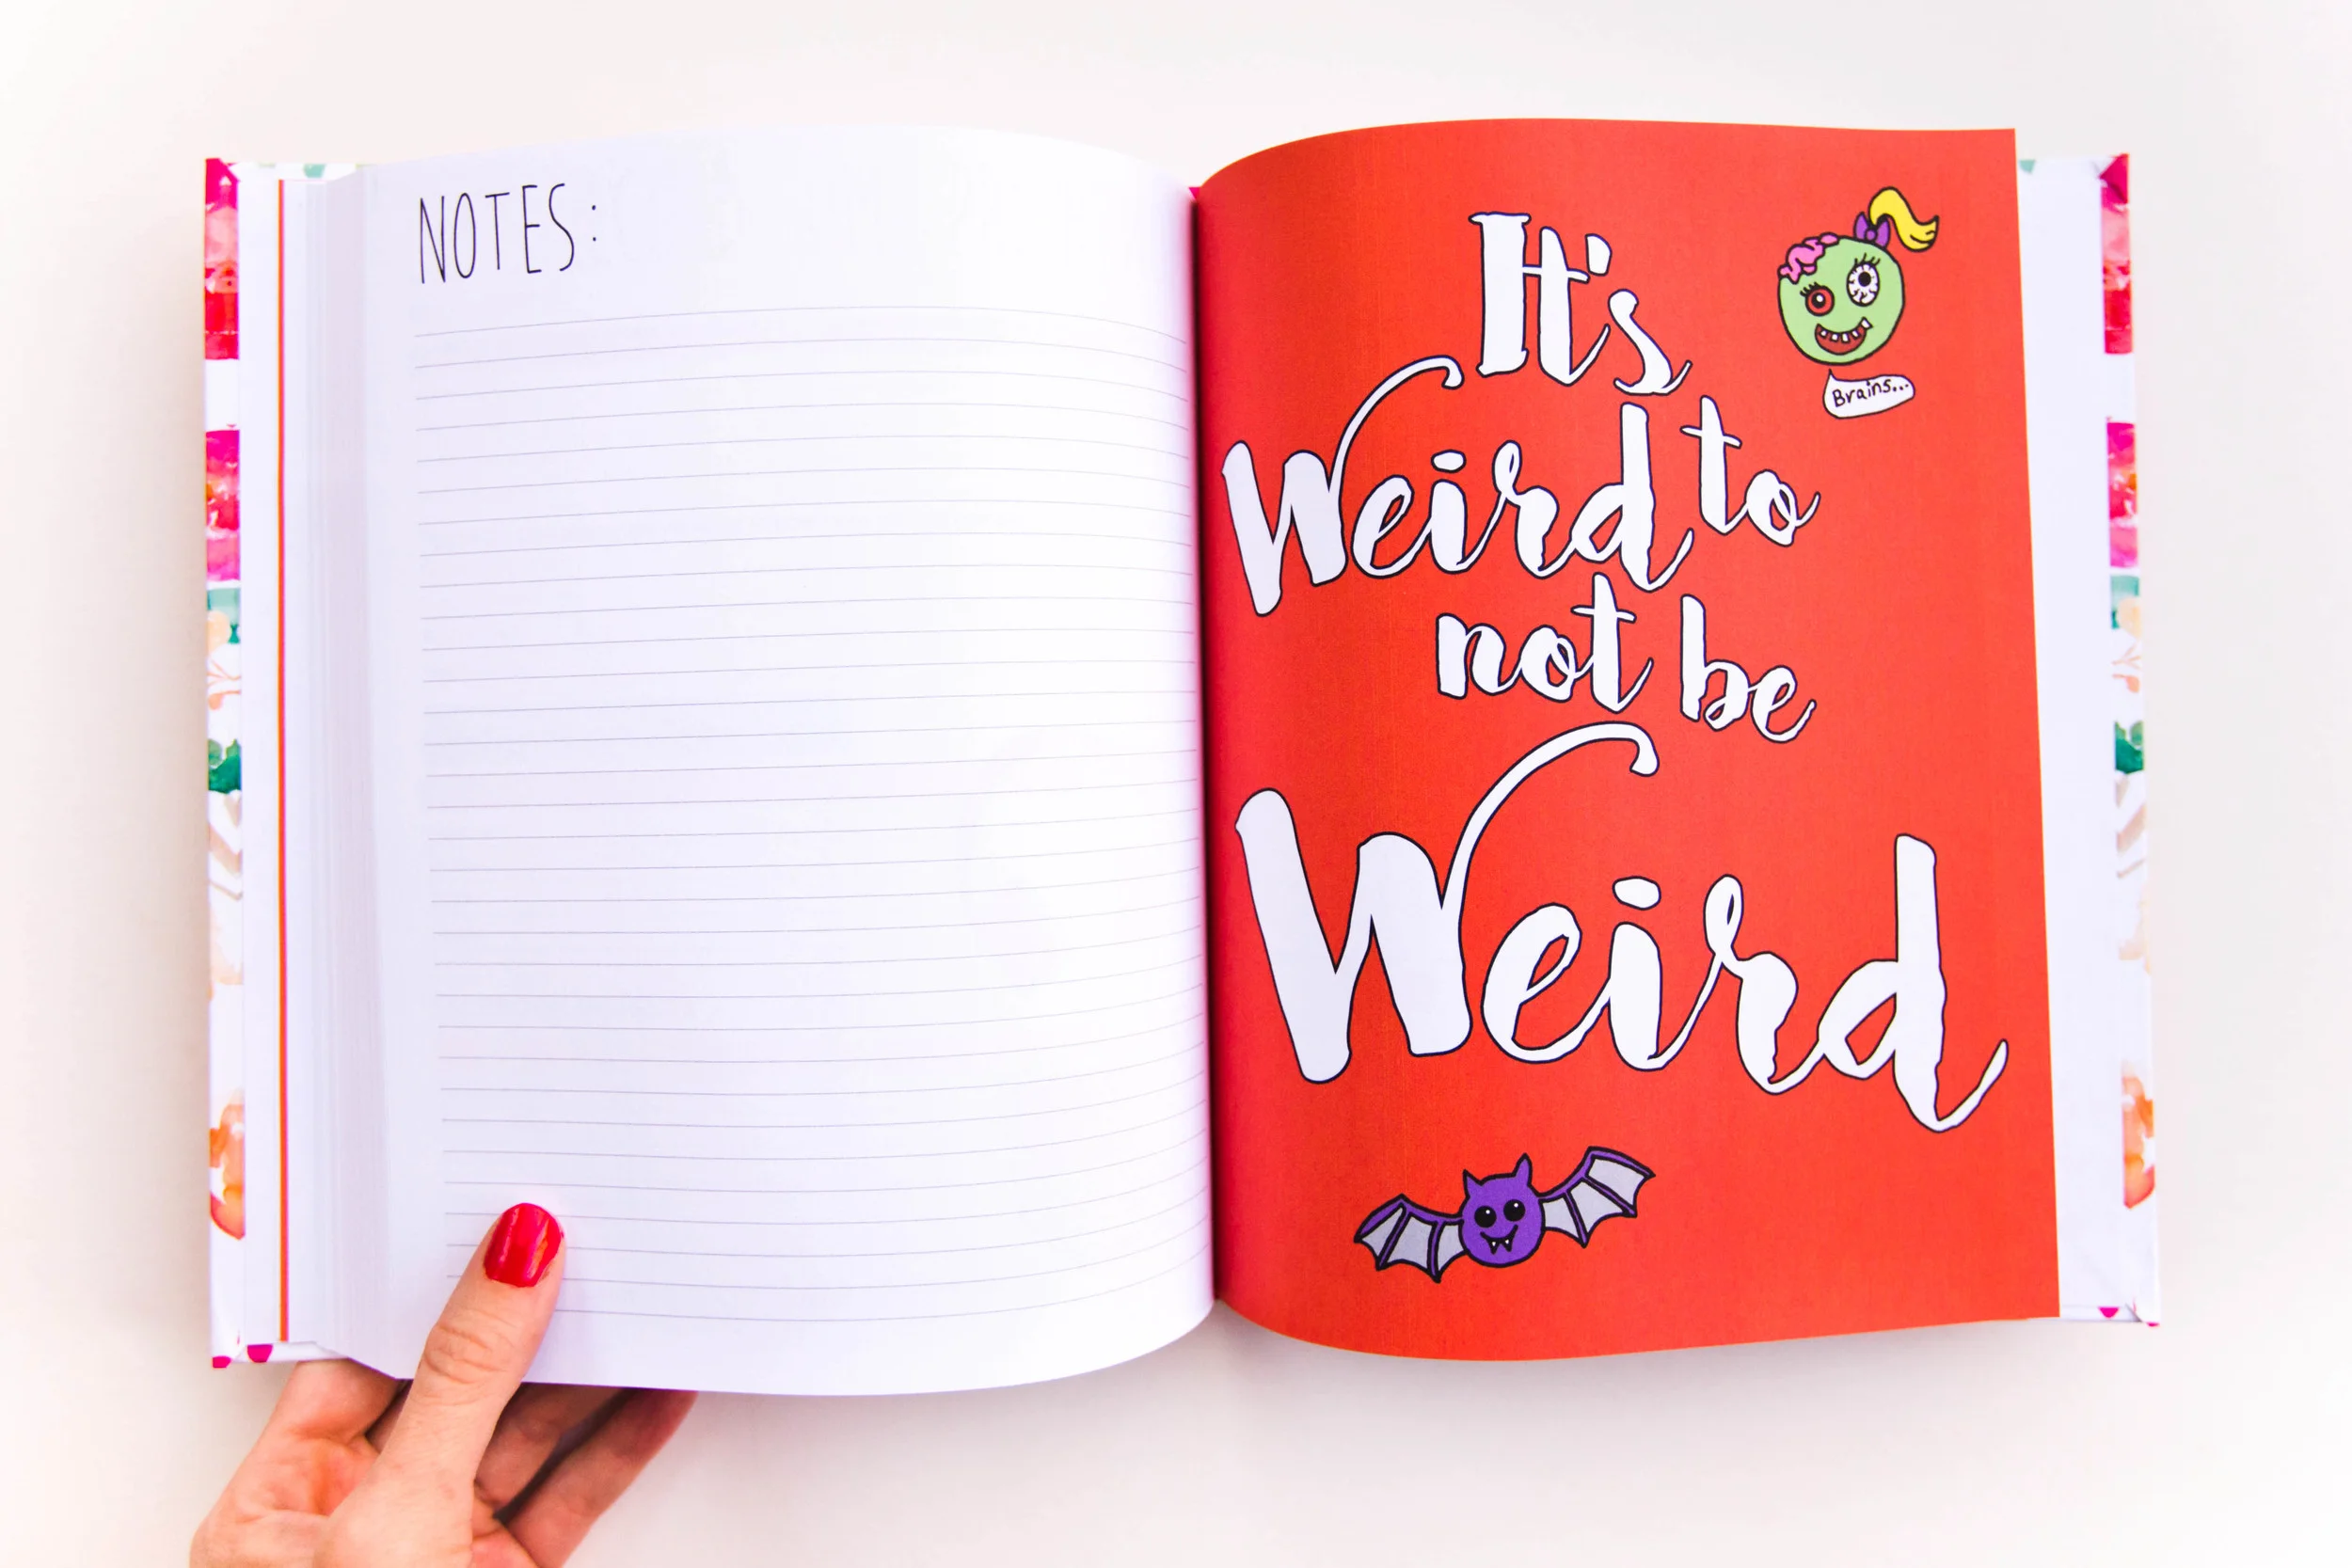 NOTES:
It's
Weird to
not be
Weird
Brains...